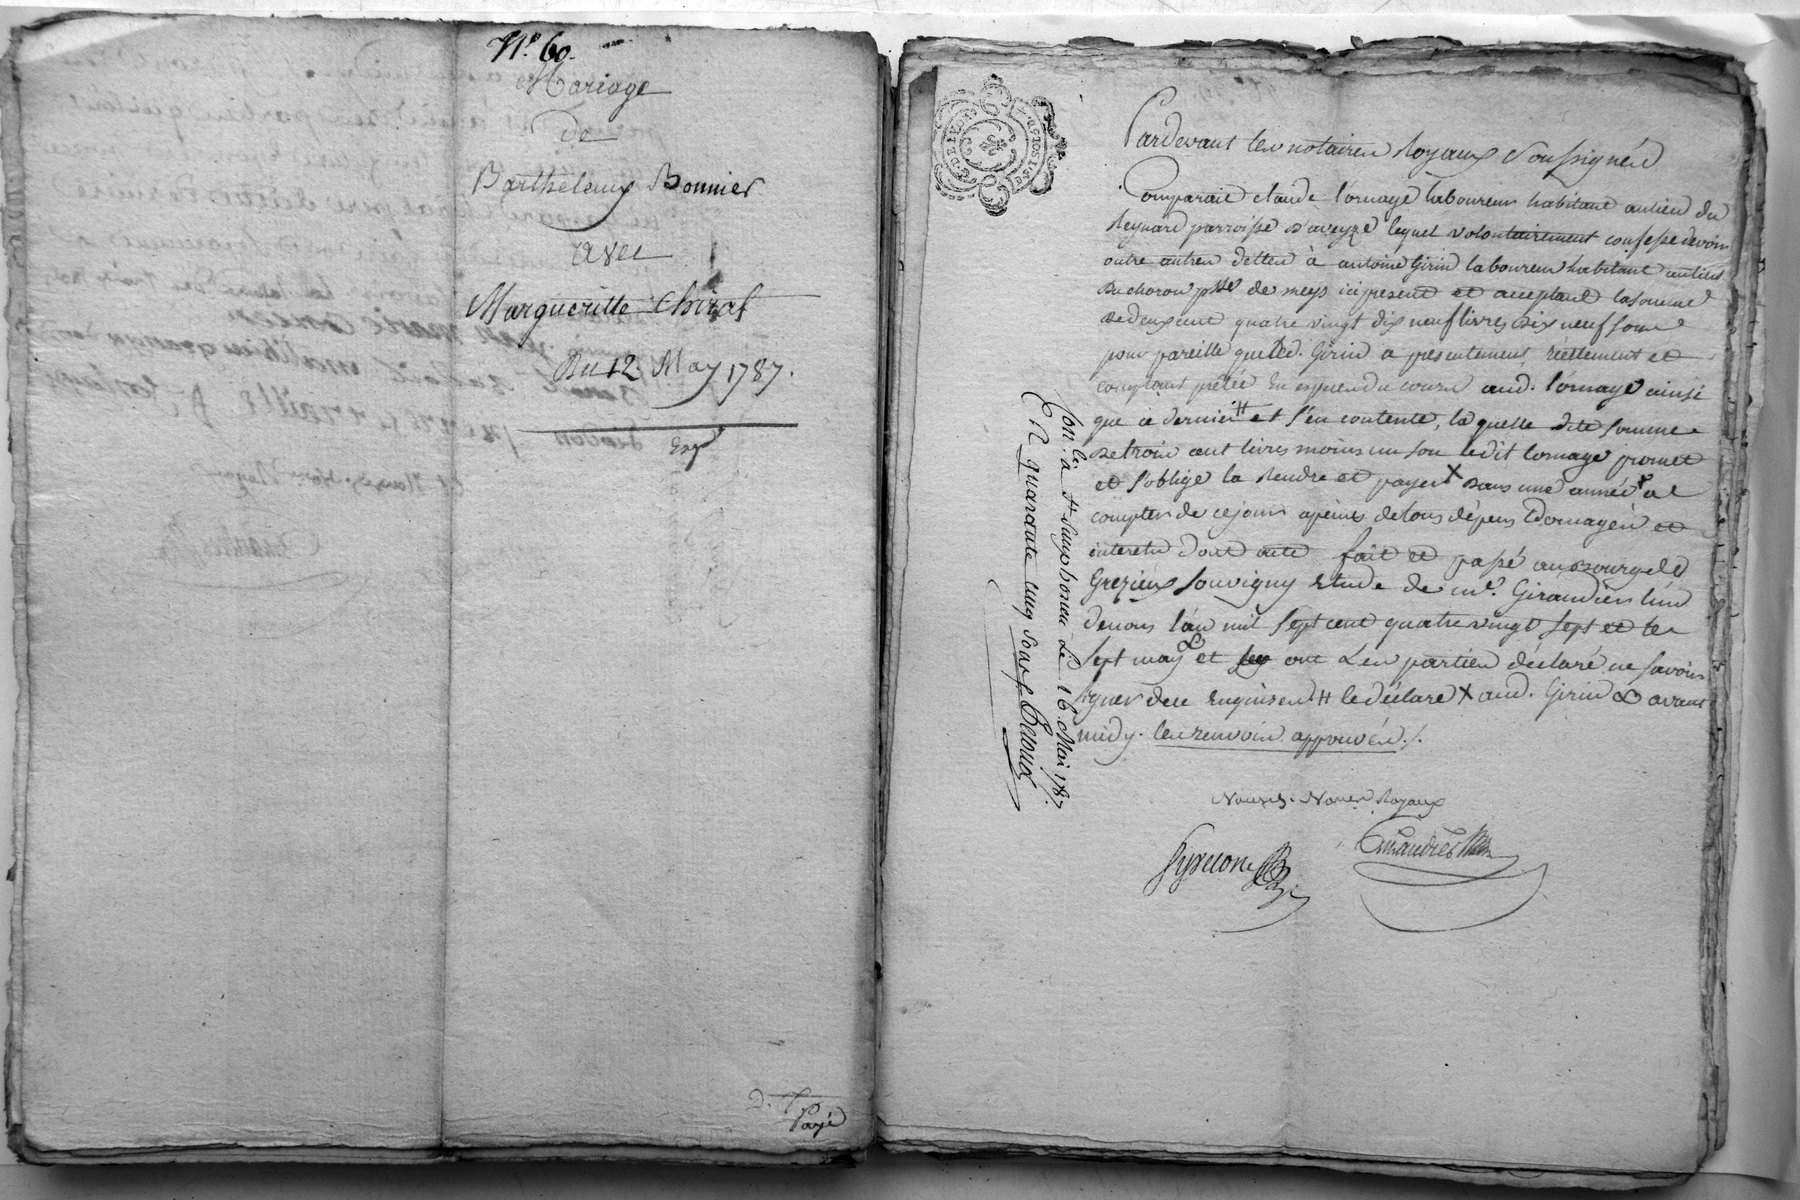 N.° 60.
Mariage
De
Barthelemy Bonnier
avec
Margueritte Chirat
Du 12. May 1787.
Exp
D. Payé
Pardevant les notaires Royaux Soussignés
Comparait claude l'ornage laboureur habitant au lieu du
Reynard parroisse d'aveyze lequel volontairement confesse devoir
outre autres dettes à antoine Girin laboureur habitant au lieu
Du choron psse de meys ici present et acceptant la somme
De deux cent quatre vingt dix neuf livres dix neuf sous
pour pareille que led. Girin a presentement réellement et
comptant pretée en especes du cours aud. l'ornage ainsi
que ce dernier # et s'en contente, la quelle dite somme
De trois cent livres moins un sou ledit lornage promet
et s'oblige la rendre et payer X dans une année a
compter de ce jour apeine de tous dépens Domages et
interets dont acte fait et passé au bourg de
Grezieu Souvigny Etude de me. Giraudier l'un
de nous l'an mil sept cent quatre vingt sept et le
sept may ∞ et ont les parties déclaré ne savoir
signer de ce Enquises # le déclare X aud. Girin ∞ avant
midy. les renvois approuvés ./.
Giraudier
Con.lé à St. Simphorien Le 16 Mai 1787.
R quarante cinq sous